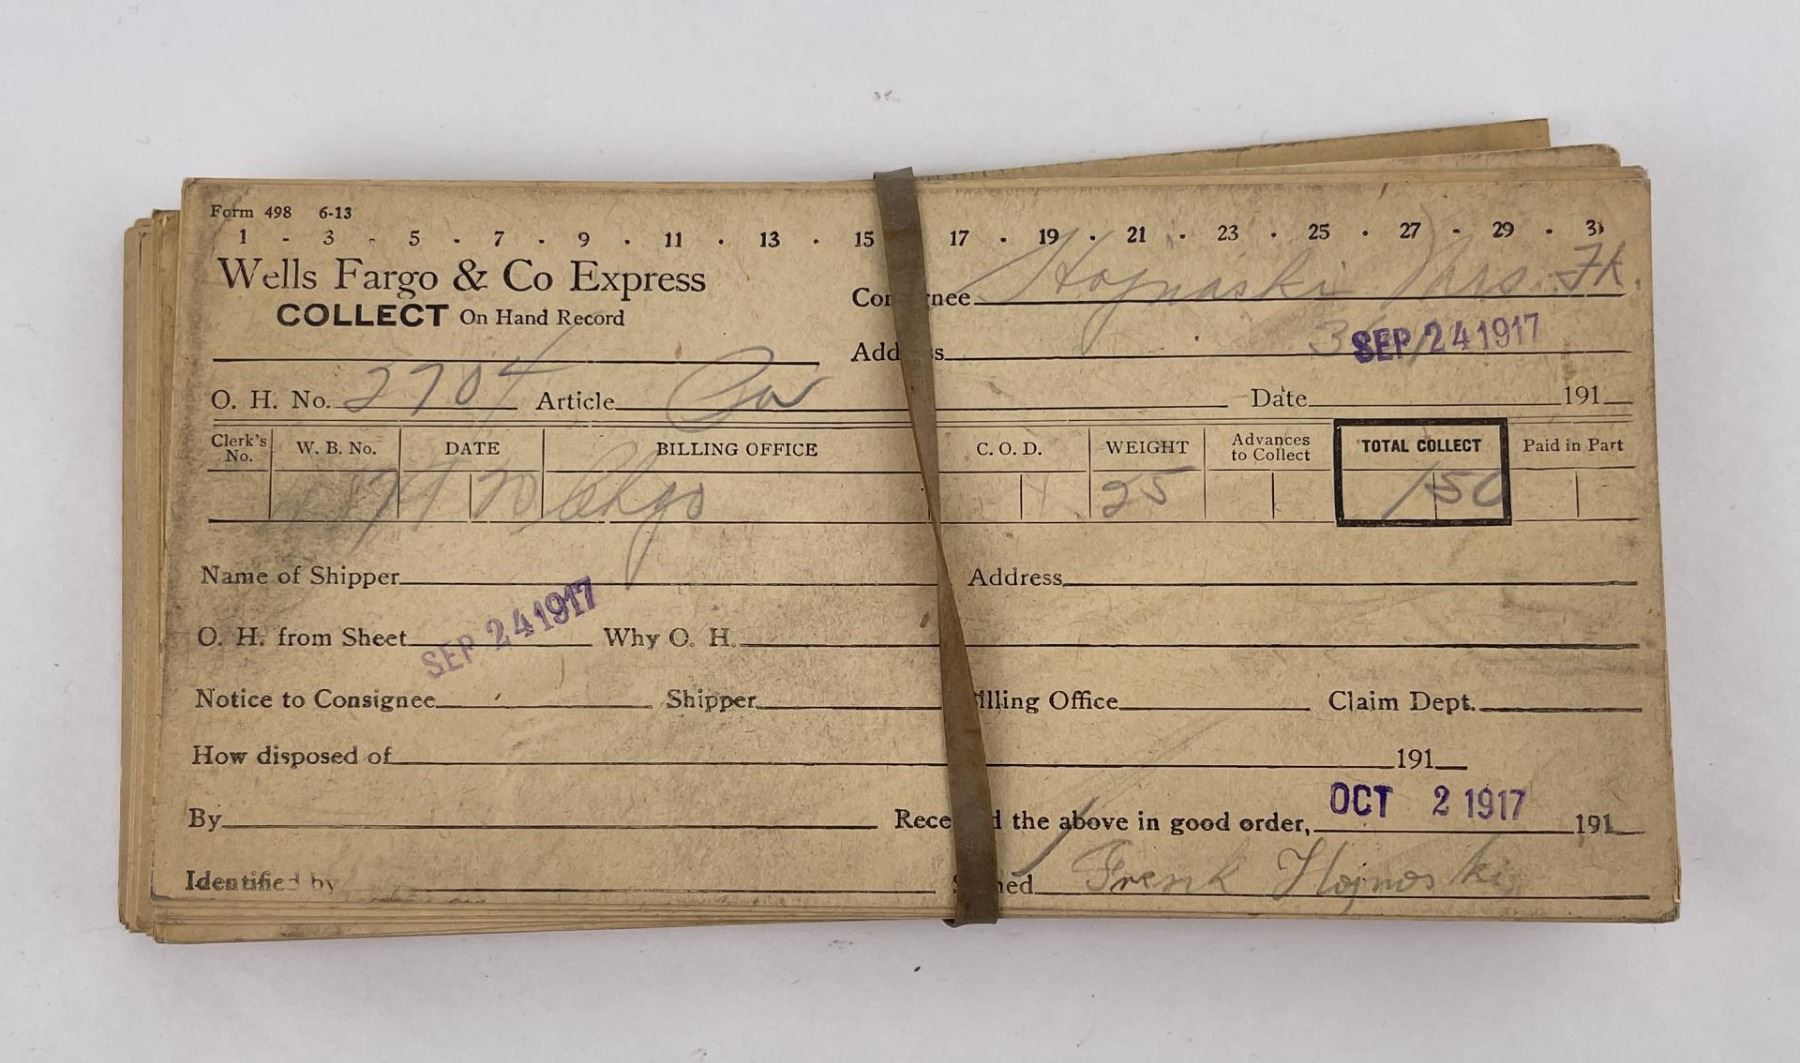 Form 498 6-13
1 - 3 - 5 . 7 . 9 . 11 . 13 . 15 17 . 19 . 21 . 23 . 25 . 27 . 29 . 31
Wells Fargo & Co Express
COLLECT On Hand Record
Consignee Hojnaski Mrs. Fk.
Address SEP 24 1917
O. H. No. 2704 Article Date 191
Clerk's No. W. B. No. DATE BILLING OFFICE C. O. D. WEIGHT Advances to Collect TOTAL COLLECT Paid in Part
20 Chgo 25 1 50
Name of Shipper Address
SEP 24 1917
O. H. from Sheet Why O. H.
Notice to Consignee Shipper Billing Office Claim Dept.
How disposed of 191
OCT 2 1917
By Received the above in good order, 191
Identified by Signed Frenk Hojnoski